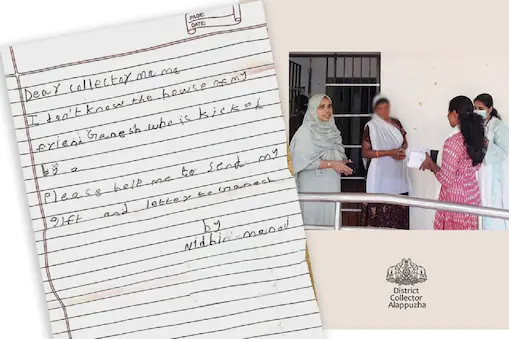 PAGE:
DATE:
Dear collector
I don't know the house my
Ganesh who is kicked
by a
Please help me to send my
gift and letter to Ganesh
by
District
Collector
Alappuzha